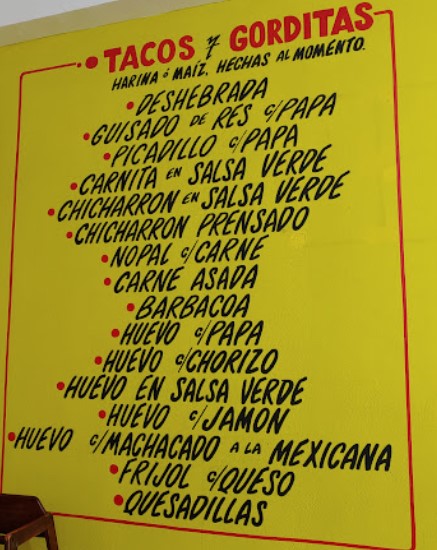 • TACOS y GORDITAS
HARINA ó MAÍZ. HECHAS AL MOMENTO.
• DESHEBRADA
• GUISADO DE RES c/PAPA
• PICADILLO c/PAPA
• CARNITA EN SALSA VERDE
• CHICHARRON EN SALSA VERDE
• CHICHARRON PRENSADO
• NOPAL c/CARNE
• CARNE ASADA
• BARBACOA
• HUEVO c/PAPA
• HUEVO c/CHORIZO
• HUEVO EN SALSA VERDE
• HUEVO c/JAMON
• HUEVO c/MACHACADO A LA MEXICANA
• FRIJOL c/QUESO
• QUESADILLAS